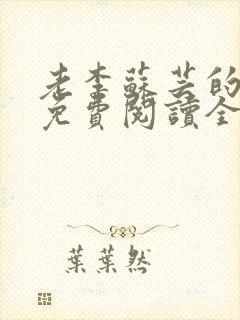 老李蘇芸的
免費閱讀全
葉葉然